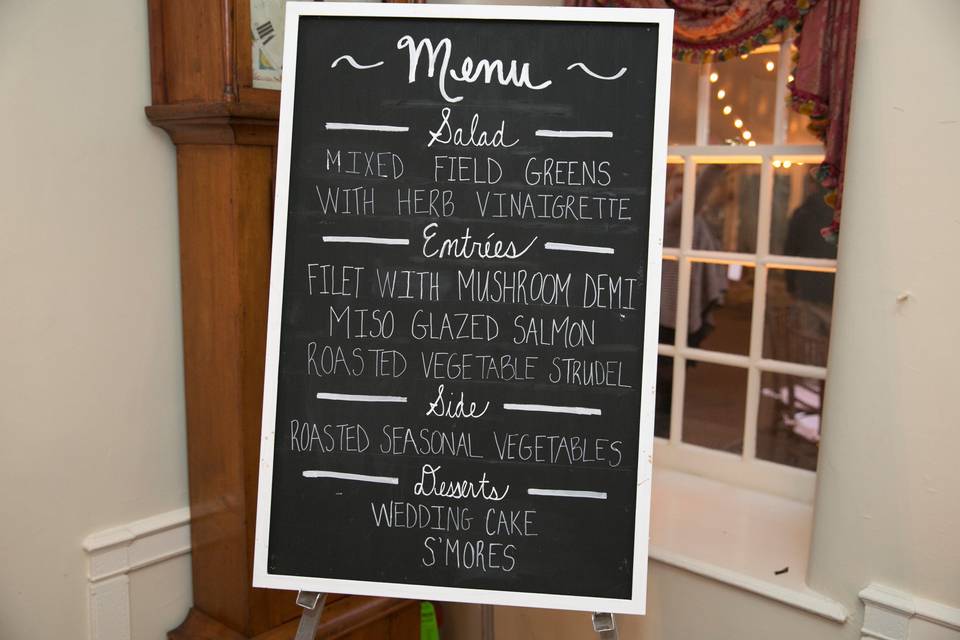 Menu
Salad
MIXED FIELD GREENS
WITH HERB VINAIGRETTE
Entrées
FILET WITH MUSHROOM DEMI
MISO GLAZED SALMON
ROASTED VEGETABLE STRUDEL
Side
ROASTED SEASONAL VEGETABLES
Desserts
WEDDING CAKE
S'MORES